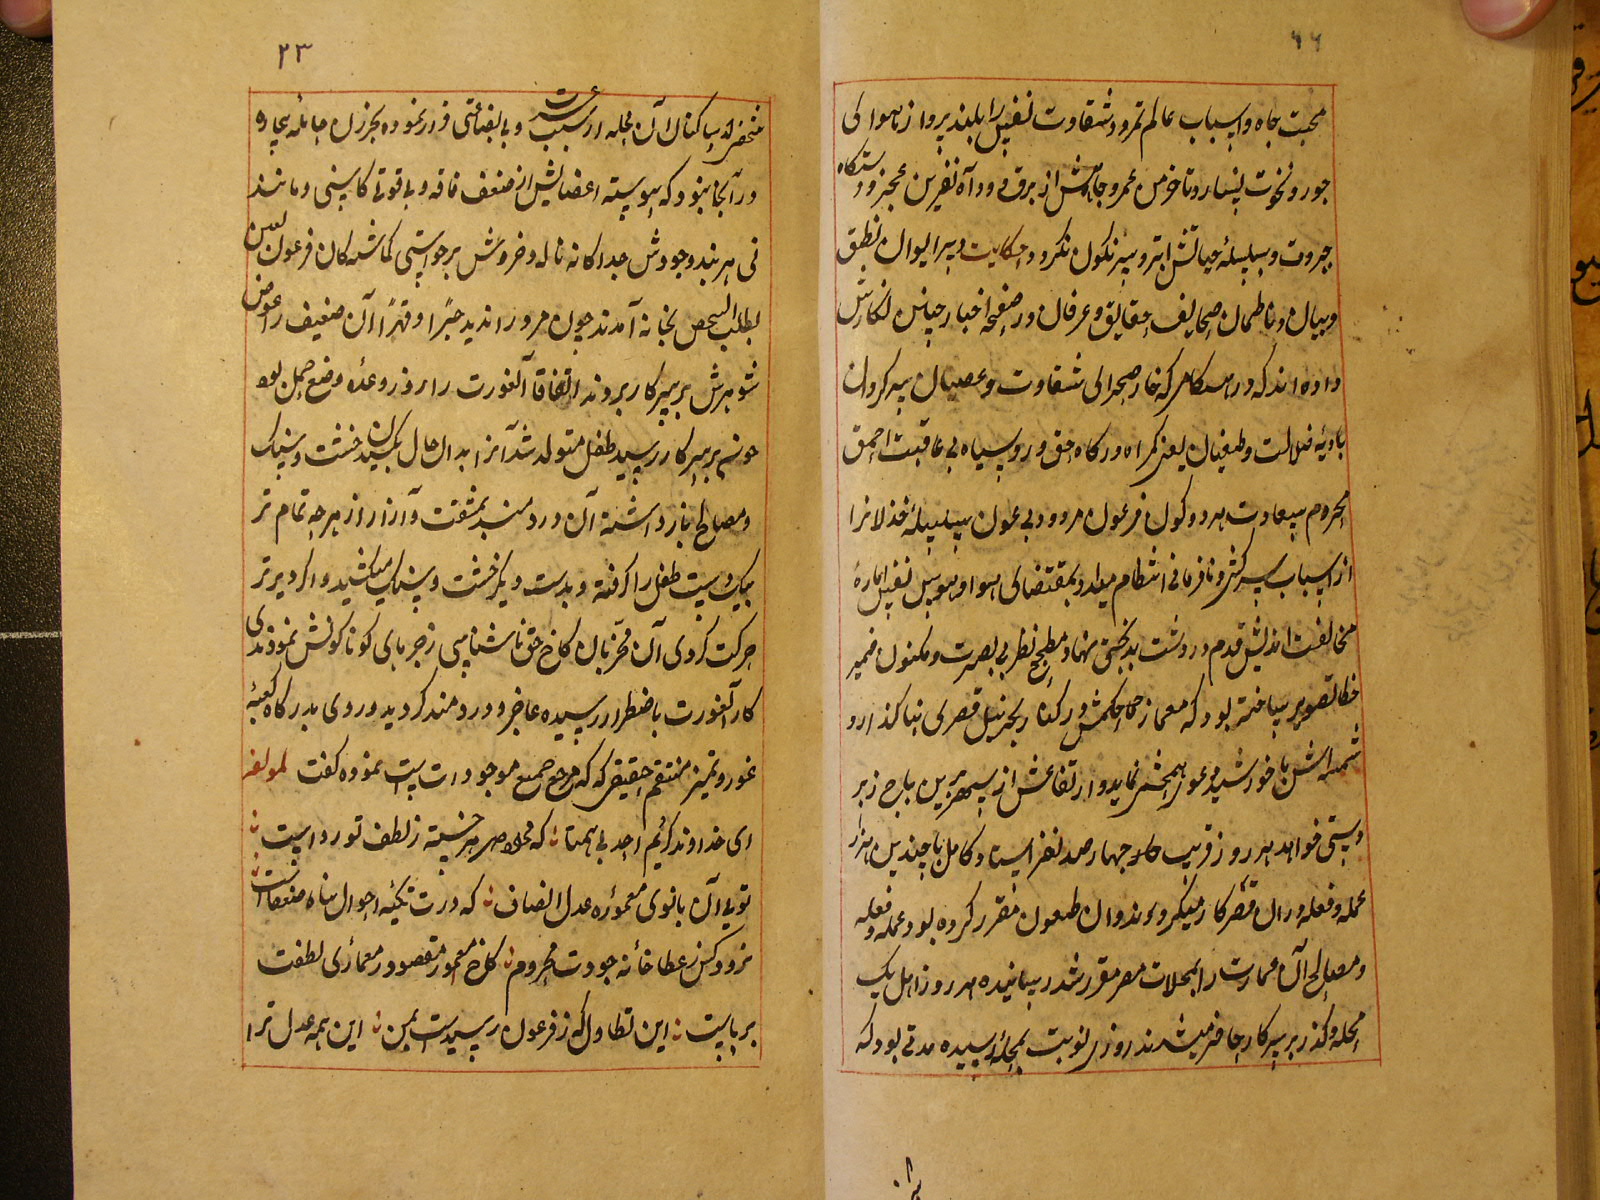 ۶۶
محبت جاه و اسباب عالم تمرد و شقاوت نفس را بلند پرواز هوای
جور و نخوت نسازد تا خرمن عمر و جاهش از برق دود آه نفرین عجز و دستکاه
جبروت و سلسلهٔ حیاتش ابتر و سرنکون نکردد حکایت دبیر ایوان نطق
و بیان و ناظمان صحایف حقایق و عرفان در صفحهٔ اخبار چنین نکارش
داده اند که در هنکامی که خار صحرای شقاوت و عصیان سرکردان
بادیهٔ ضلالت و طغیان یعنی کمراه درکاه حق و روسیاه بی عاقبت احمق
محروم سعادت هر دو کون فرعون مردود بی عون سلسلهٔ خذلانرا
از اسباب سرکشی و نافرمانی انتظام میداد و بمقتضای هوا و هوس نفس امارهٔ
مخالفت اندیش قدم در دشت بدبختی می نهاد مطمح نظر بی بصیرت و مکنون ضمیر
خطا تصویر ساخته بود که معمار حکمش در کنار بحر نیل قصری بنا کذارد
شمسه اش با خورشید دعوی همچشمی نماید و ارتفاعش از سپهر برین باج زبر
دستی خواهد هر روز قریب چهار صد نفر استاد کامل با چندین هزار
عمله و فعله در ان قصر کار میکردند و ان طعون مقرر کرده بود عمله و فعله
و مصالح آن عمارت را بمحلات مصر مقرر شد رسانیده هر روز اهل یک
محله و کذر بر سر کار حاضر میشدند روزی نوبت بمحلهٔ رسیده مدتی بود که
۲۳
شخصی از ساکنان آن محله از سبب عسرت و بی بضاعتی فرار نموده بجز زن حاملهٔ بیچاره
در آنجا نبود که پیوسته اعضایش از ضعف فاقه و بی قوتی کاستی و مانند
نی هر بند وجودش جداکانه ناله و خروش برخواستی کماشتکان فرعون لعین
بطلب آن شخص بخانه آمدند چون مرد را ندید جبرًا و قهرًا آن ضعیف را عوض
شوهرش بر سر کار بردند اتفاقا آنعورت را روز وعدهٔ وضع حمل بود
چون بر سر کار رسید طفل متولد شد آنرا بدان حال بکشیدن خشت و سنک
و مصالح بازداشتند آن دردمند بمشقت و آزار از هر چه تمام تر
بیک دست طفل را کرفته و بدست دیکر خشت و سنک میکشید و اکر دیر تر
حرکت کردی آن مخربان کاخ حق ناشناسی زجرهای کوناکونش نمودندی
کار آنعورت باضطرار رسیده عاجز و دردمند کردید و روی بدرکاه کعبهٔ
غور و تمیز منتقم حقیقی که مرجع جمیع موجودات است نموده کفت لمولفه
ای خداوند کریم احد بی همتا : که خلاص هر خسته ز لطف تو رواست :
تویی آن بانوی معمورهٔ عدل و انصاف : که درت تکیه احوال پناه ضعفاست :
نرود کس ز عطا خانهٔ جودت محروم : کاخ معمور مقصود ز معماری لطفت
برپاست : این تطاول که ز فرعون رسیدست بمن : این همه عدل ترا